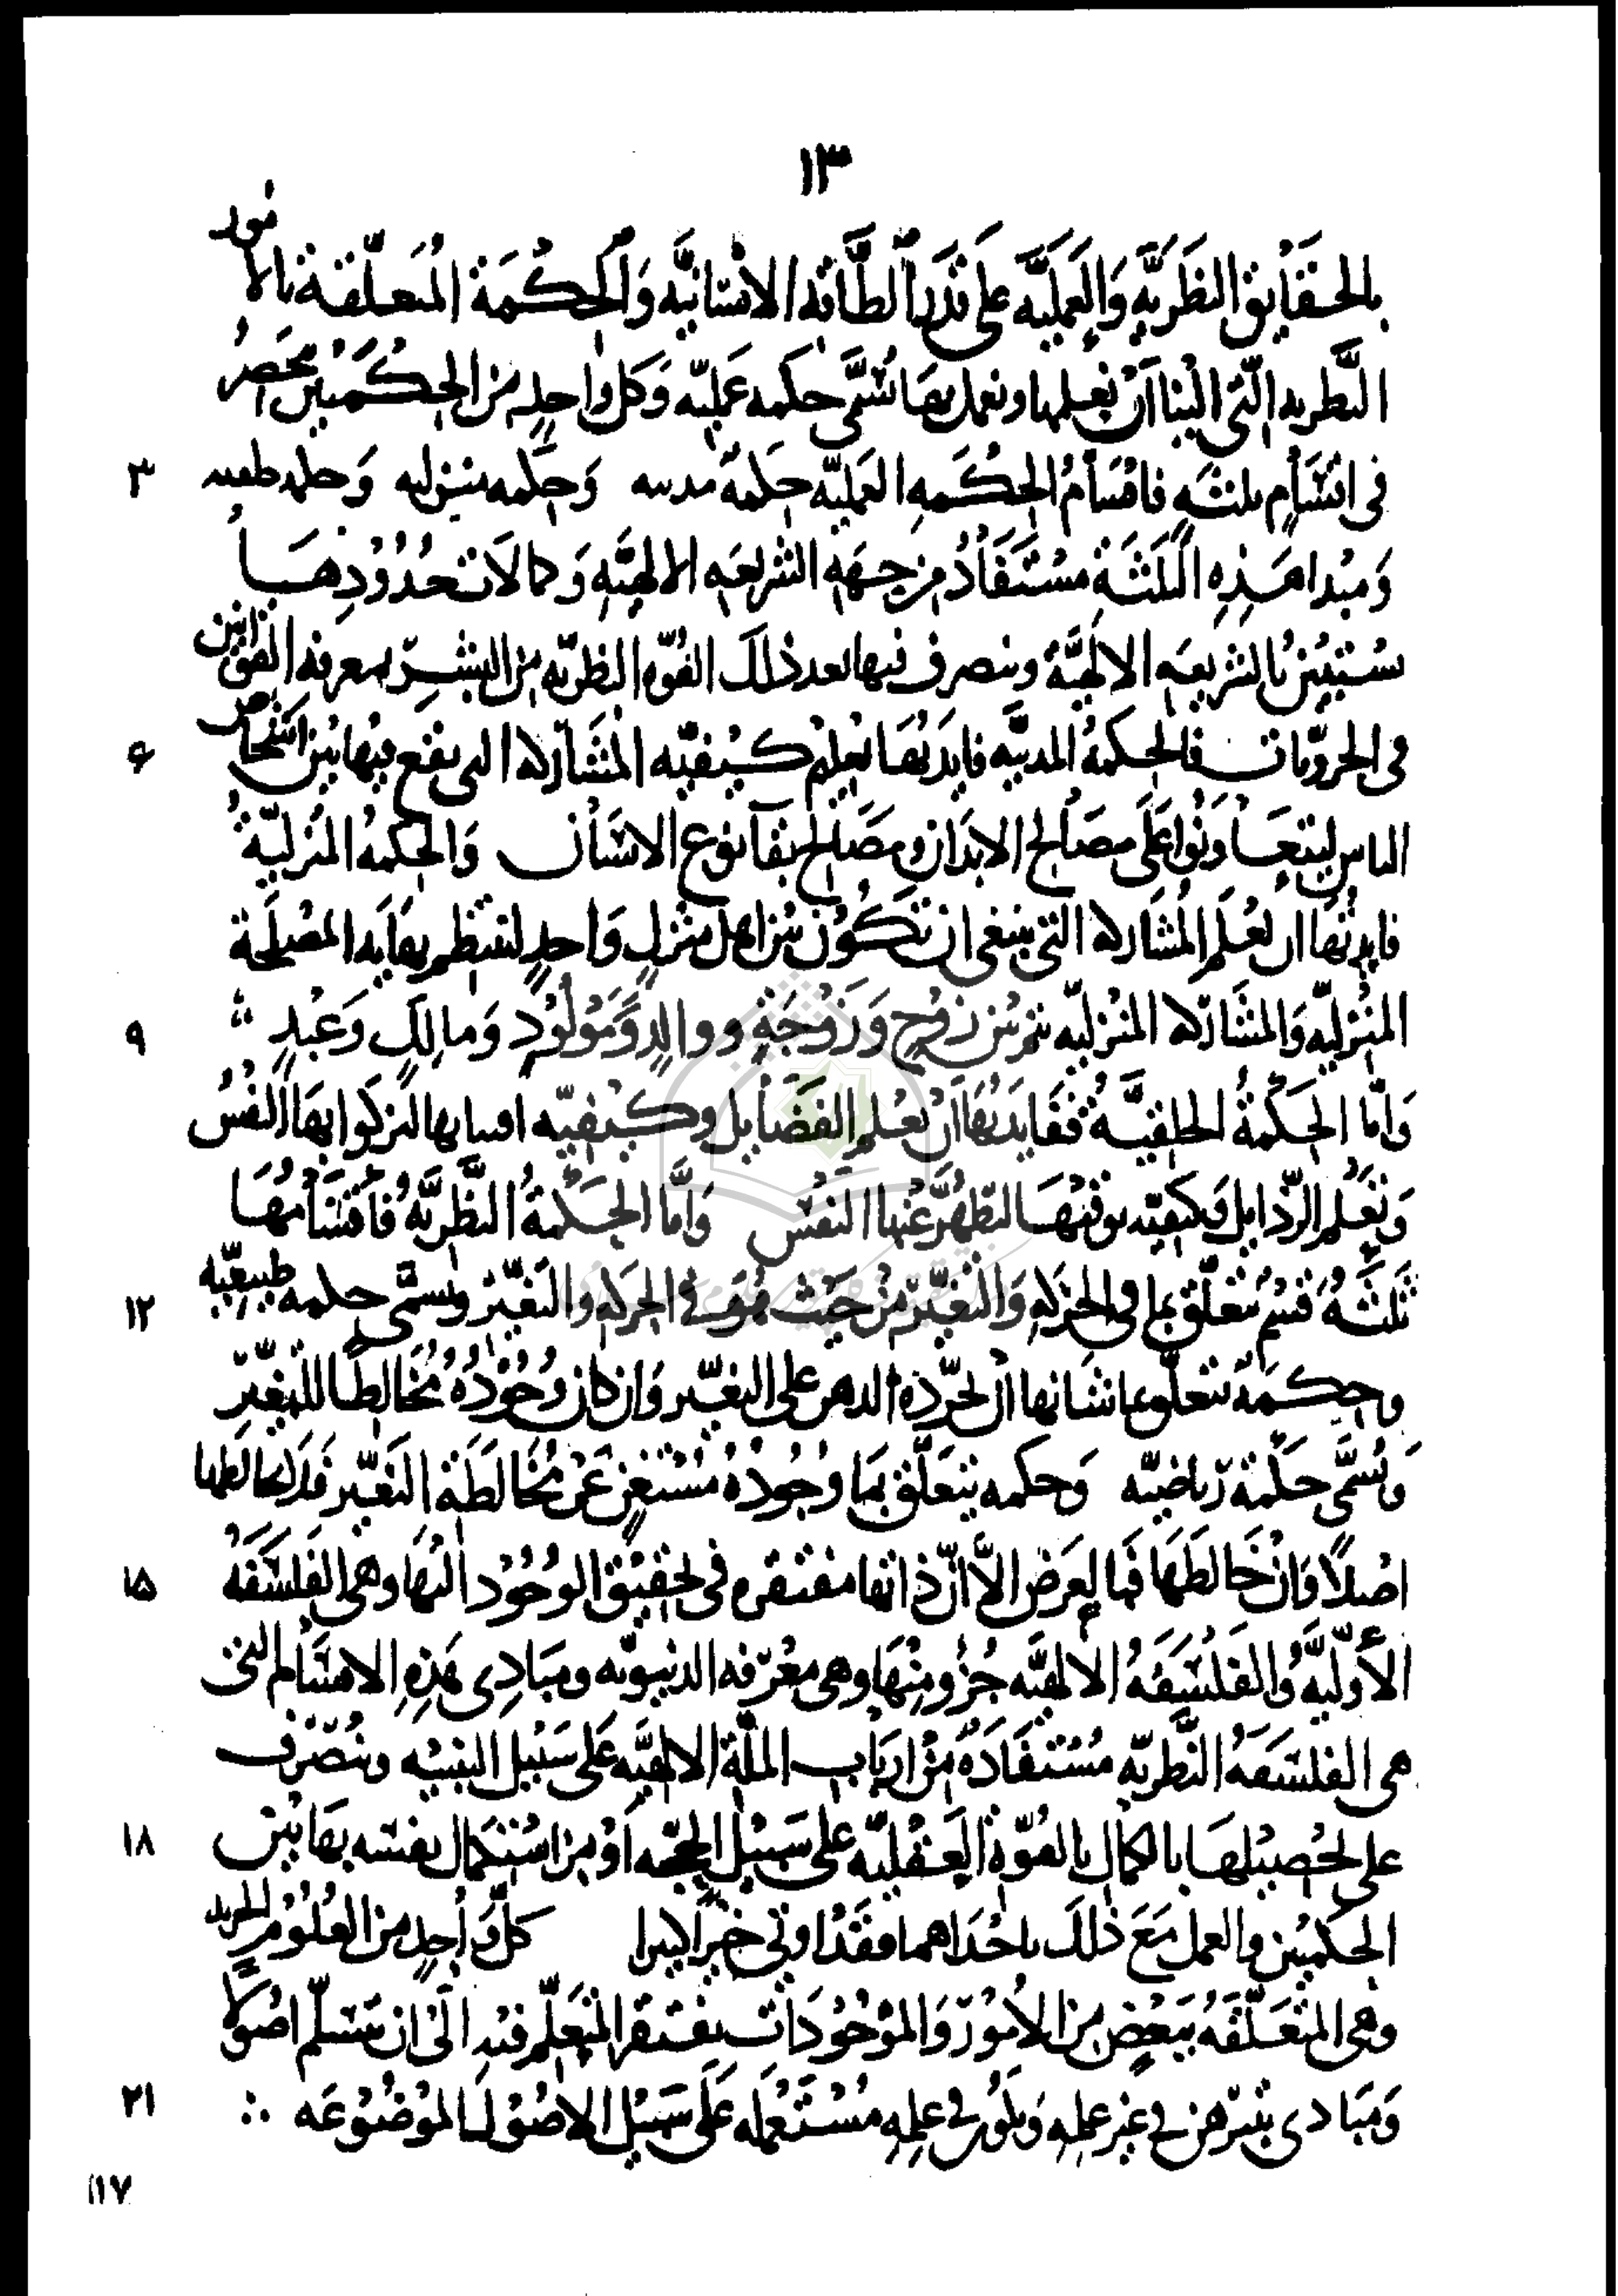 ١٣
بالحقايق النظريّه والعمليّه على قدر الطاقه الانسانيّه والحكمة المتعلّقة بالامور
النّظريه الّتى الينا ان نعلمها ونعمل بها تسمّى حكمه عمليّه وكل واحده من الحكمتين تنحصر
فى اقسام ثلثه فاقسام الحكمه العمليّه حكمة مدنيه وحكمه منزليه وحكمه خلقيه ٣
ومبدا هذه الثلثة مستفاد من جهة الشريعه الالهيّه وكمالات حدودها
تستبين بالشريعه الالهيّة وينصرف فيها بعد ذلك القوّه النظريّه من البشر بمعرفه القوانين
فى الجزويّات فالحكمة المدنيّه فايدتها تعلم كيفيّه المشاركه التى يقع فيها بين اشخاص ۶
الناس ليتعاونوا على مصالح الابدان ومصالح بقآ نوع الانسان والحكمة المنزليّة
فايدتها ان تعلم المشاركه التى ينبغى ان تكون بين اهل منزل واحد لتنتظم بها به المصلحة
المنزليّه والمشاركه المنزليّه تتم بين زوج وزوجة ووالد ومولود ومالك وعبد ٩
وامّا الحكمة الخلقيّة ففايدتها ان تعلم الفضايل وكيفيّه اقتنايها لتزكوا بها النفس
وتعلم الرّذايل وكيفيّه توقيها لتطهّر عنها النفس وامّا الحكمة النظريّة فاقسامها
ثلثة قسم تتعلّق بما فى الحركه والتغيّر من حيث هو فى الحركه والتغيّر وتسمّى حكمه طبيعيّه ١٢
وحكمة تتعلّق بما شانها ان تجرّده الذهن على التغيّر وان كان وجوده مخالطا للتغيّر
وتسمّى حكمة رياضيّه وحكمه تتعلّق بما وجوده مستغن عن مخالطة التغيّر فلا يخالطها
اصلا وان خالطها فبالعرض الاّ انّ ذاتها مفتقره فى تحقيق الوجود اليها وهى الفلسفة ١۵
الأوليّة والفلسفة الالهيّه جزو منها وهى معرفه الربوبيّه ومبادى هذه الاقسام التى
هى الفلسفة النّظريّه مستفادة من ارباب الملّة الالهيّه على سبيل التنبيه وينصرف
على تحصيلها بالكمال بالقوّة العقليّه على سبيل الحجّه اومن استكمال نفسه بهاتين ١٨
الحكمتين والعمل مع ذلك باحداهما فقد اوتى خيرا كثيرا كلّ واحد من العلوم الجزويه
وهى المتعلّقه ببعض من الامور والموجودات يفتقر المتعلّم فيه الى ان يتسلّم اصولا
ومبادى تتبرهن فى غير علمه وتكون فى علمه مستعمله على سبيل الاصول الموضوعه ٢١
١١٧